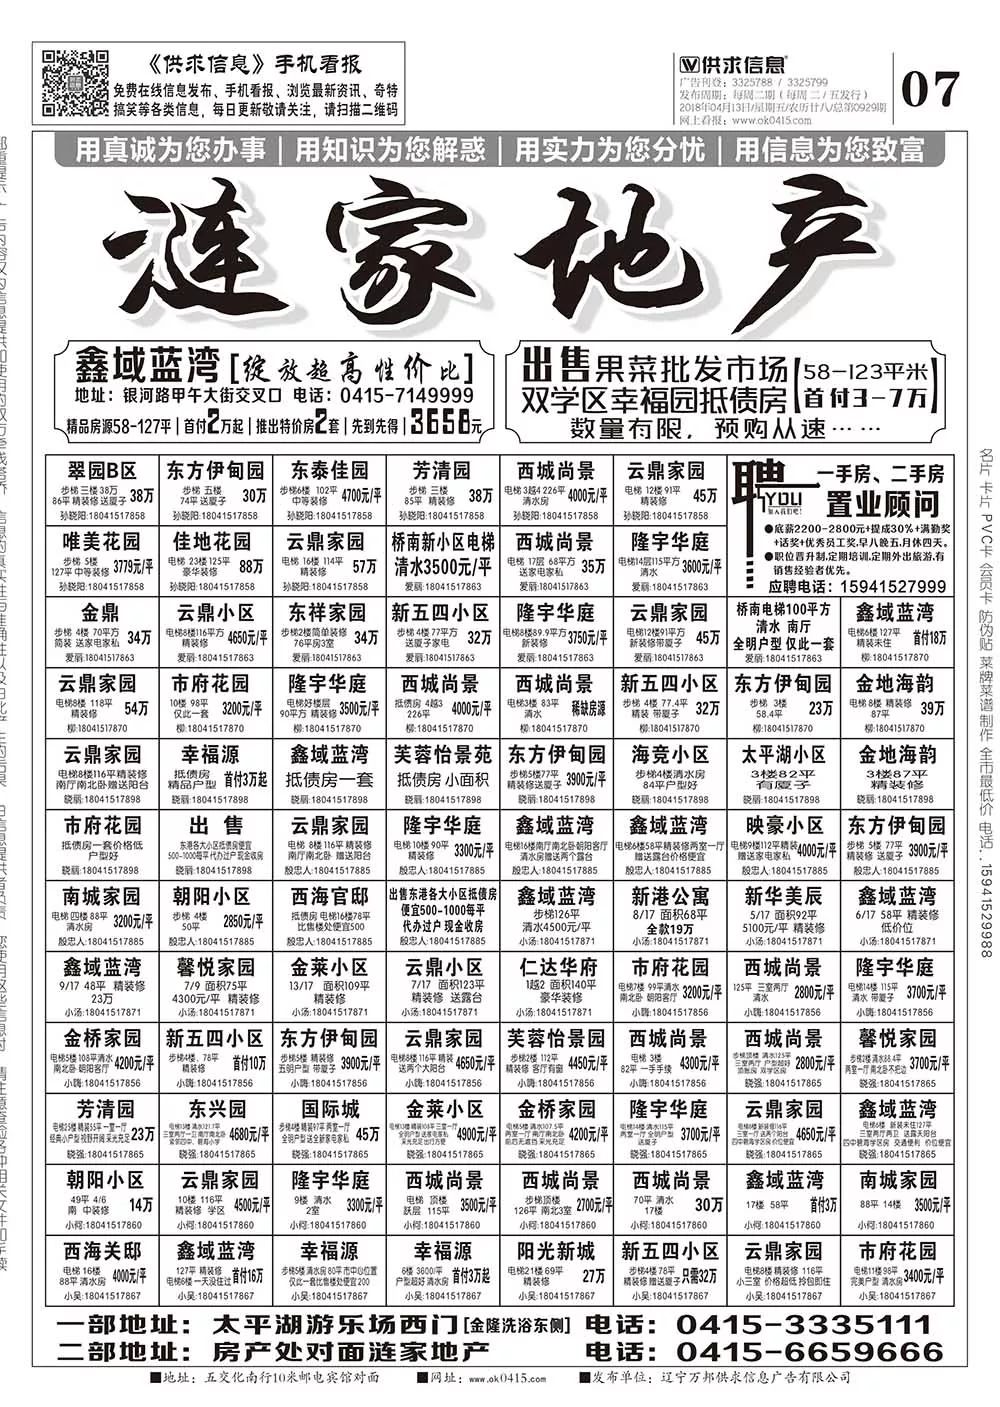 《供求信息》手机看报
免费在线信息发布、手机看报、浏览最新资讯、奇特
搞笑等各类信息，每日更新敬请关注，请扫描二维码
供求信息
广告刊登：3325788 / 3325799
发布周期：每周二期（每周 二 / 五发行）
2018年04月13日/星期五/农历廿八/总第0929期
网上看报：www.ok0415.com
07
用真诚为您办事 | 用知识为您解惑 | 用实力为您分忧 | 用信息为您致富
涟家地产
鑫域蓝湾[绽放超高性价比]
地址：银河路甲午大街交叉口 电话：0415-7149999
精品房源58-127平 | 首付2万起 | 推出特价房2套 | 先到先得 | 3658元
出售果菜批发市场
双学区幸福园抵债房
【58-123平米
首付3-7万】
数量有限，预购从速……
翠园B区
步梯 三楼 38万
86平 精装修 送厦子
38万
孙晓阳:18041517858
东方伊甸园
步梯 五楼
74平 送厦子
30万
孙晓阳:18041517858
东泰佳园
步梯6楼 102平
中等装修
4700元/平
孙晓阳:18041517858
芳清园
步梯 三楼
85平 精装修
38万
孙晓阳:18041517858
西城尚景
电梯 3越4 226平
清水房
4000元/平
孙晓阳:18041517858
云鼎家园
电梯 12楼 91平
精装修
45万
孙晓阳:18041517858
聘
YOU
加入我们吧!
一手房、二手房
置业顾问
●底薪2200-2800元+提成30%+满勤奖
+话奖+优秀员工奖,早八晚五,月休四天。
●职位晋升制,定期培训,定期外出旅游,有
销售经验者优先。
应聘电话：15941527999
唯美花园
步梯 5楼
127平 中等装修
3779元/平
孙晓阳:18041517858
佳地花园
电梯 23楼 125平
豪华装修
88万
孙晓阳:18041517858
云鼎家园
电梯 16楼 114平
精装修
57万
孙晓阳:18041517858
桥南新小区电梯
清水3500元/平
爱丽:18041517863
西城尚景
电梯 17层 68平方
送家电家私
35万
爱丽:18041517863
隆宇华庭
电梯14层115平方
清水
3600元/平
爱丽:18041517863
金鼎
步梯 4楼 70平方
简装 送家电家私
34万
爱丽:18041517863
云鼎小区
电梯8楼116平方
精装修
4650元/平
爱丽:18041517863
东祥家园
步梯2楼简单装修
76平房3室
34万
爱丽:18041517863
新五四小区
步梯 4楼 77平方
送厦子家电
32万
爱丽:18041517863
隆宇华庭
电梯8楼89.9平方
新装修
3750元/平
爱丽:18041517863
云鼎家园
电梯12楼91平方
新装修带厦子
45万
爱丽:18041517863
桥南电梯100平方
清水 南厅
全明户型 仅此一套
爱丽:18041517863
鑫域蓝湾
电梯6楼 127平
精装未住
首付18万
柳:18041517870
云鼎家园
电梯8楼 118平
精装修
54万
柳:18041517870
市府花园
10楼 98平
仅此一套
3200元/平
柳:18041517870
隆宇华庭
电梯好楼层
90平方 精装修
3500元/平
柳:18041517870
西城尚景
抵债房 4越3
226平
4000元/平
柳:18041517870
西城尚景
电梯3楼 83平
清水
稀缺房源
柳:18041517870
新五四小区
步梯 4楼 77.4平
精装 带厦子
32万
柳:18041517870
东方伊甸园
步梯 3楼
58.4平
23万
柳:18041517870
金地海韵
电梯 8楼 精装修
87平
39万
柳:18041517870
云鼎家园
电梯8楼116平精装修
南厅南北卧赠送阳台
晓丽:18041517898
幸福源
抵债房
精品户型
首付3万起
晓丽:18041517898
鑫域蓝湾
抵债房一套
晓丽:18041517898
芙蓉怡景苑
抵债房 小面积
晓丽:18041517898
东方伊甸园
步梯5楼77平
精装修送厦子
3900元/平
晓丽:18041517898
海竞小区
步梯4楼清水房
84平户型好
晓丽:18041517898
太平湖小区
3楼82平
有厦子
晓丽:18041517898
金地海韵
3楼87平
精装修
晓丽:18041517898
市府花园
抵债房一套价格低
户型好
晓丽:18041517898
出 售
东港各大小区抵债房便宜
500-1000每平 代办过户 现金收房
殷忠人:18041517885
云鼎家园
电梯 8楼 116平 精装修
南厅南北卧 赠送阳台
殷忠人:18041517885
隆宇华庭
电梯 10楼 90平
精装修
3300元/平
殷忠人:18041517885
鑫域蓝湾
电梯16楼南厅南北卧朝阳客厅
清水房赠送两个露台
殷忠人:18041517885
鑫域蓝湾
电梯6楼58平精装修两室一厅
赠送露台价格便宜
殷忠人:18041517885
映豪小区
电梯9楼112平精装
赠送家电家私
4000元/平
殷忠人:18041517885
东方伊甸园
步梯 5楼 77平
精装修 送厦子
3900元/平
殷忠人:18041517885
南城家园
电梯 四楼 88平
清水房
3200元/平
殷忠人:18041517885
朝阳小区
步梯 4楼
50平
2850元/平
殷忠人:18041517885
西海官邸
抵债房 电梯16楼78平
比售楼处便宜500
殷忠人:18041517885
出售东港各大小区抵债房
便宜500-1000每平
代办过户 现金收房
殷忠人:18041517885
鑫域蓝湾
步梯126平
清水4500元/平
小汤:18041517871
新港公寓
8/17 面积68平
全款19万
小汤:18041517871
新华美辰
5/17 面积92平
5100元/平 精装修
小汤:18041517871
鑫域蓝湾
6/17 58平 精装修
低价位
小汤:18041517871
鑫域蓝湾
9/17 48平 精装修
23万
小汤:18041517871
馨悦家园
7/9 面积75平
4300元/平 精装修
小汤:18041517871
金莱小区
13/17 面积109平
精装修
小汤:18041517871
云鼎小区
7/17 面积123平
精装修 送露台
小汤:18041517871
仁达华府
1越2 面积140平
豪华装修
小汤:18041517871
市府花园
电梯7楼 99平清水
南北卧 朝阳客厅
3200元/平
小嗨:18041517865
西城尚景
125平 三室两厅
清水
2800元/平
小嗨:18041517865
隆宇华庭
电梯14楼 115平
清水 带厦子
3700元/平
小嗨:18041517865
金桥家园
电梯5楼108平清水
南北卧 朝阳客厅
4200元/平
小嗨:18041517865
新五四小区
步梯4楼、78平
精装修
首付10万
小嗨:18041517865
东方伊甸园
步梯5楼 精装修
五明户型 带厦子
3900元/平
小嗨:18041517865
云鼎家园
电梯8楼116平 精装
送两个大阳台
4650元/平
小嗨:18041517865
芙蓉怡景园
步梯2楼 112平
精装修 客厅有窗
4450元/平
小嗨:18041517865
西城尚景
电梯 3楼
82平 一手手续
4300元/平
小嗨:18041517865
西城尚景
步梯顶楼 清水125平
三室两厅 户型超好
顶账房 双学区房
2800元/平
晓强:18041517865
馨悦家园
步梯2楼清水88.4平
两室一厅 南北卧不把边
3700元/平
晓强:18041517865
芳清园
电梯25楼 精装55平 一室一厅
经典小户型 视野开阔 采光充足
23万
晓强:18041517865
东兴园
电梯13平 清水121.7平
三室两厅一卫 南厅南北卧
4680元/平
晓强:18041517865
国际城
步梯4楼 精装97平 两室一厅
全明户型送全新家电家私
45万
晓强:18041517865
金莱小区
电梯13楼 精装108平 三室一厅
全明户型 送家电家私
采光充足出行方便
4900元/平
晓强:18041517865
金桥家园
电梯5楼 清水107.5平
两室一厅 南厅南北卧
前无遮挡 采光充足
4200元/平
晓强:18041517865
隆宇华庭
电梯14楼 清水115平
两室两厅 全明户型
送厦子
3700元/平
晓强:18041517865
云鼎家园
电梯8楼 新装修116平
三室一厅 送两个阳台
四中碧海学区房 价位便宜
4650元/平
晓强:18041517865
鑫域蓝湾
电梯6楼 新装未住127平
三室两厅两卫 送露天阳台
四中碧海学区房 交通便利 价位便宜
晓强:18041517865
朝阳小区
49平 4/6
南 中装修
14万
小柯:18041517860
云鼎家园
10楼 116平
精装修 学区
4500元/平
小柯:18041517860
隆宇华庭
9楼 清水
2室
3300元/平
小柯:18041517860
西城尚景
电梯 顶楼
跃层 115平
3500元/平
小柯:18041517860
西城尚景
步梯顶楼
126平 南北3室
2700元/平
小柯:18041517860
西城尚景
70平 清水
17楼
30万
小柯:18041517860
鑫域蓝湾
17楼 58平
首付3万
小柯:18041517860
南城家园
88平 14楼
3500元/平
小柯:18041517860
西海关邸
电梯 16楼
88平 清水房
4000元/平
小吴:18041517867
鑫域蓝湾
127平 精装修
电梯6楼 一天没住过
首付16万
小吴:18041517867
幸福源
步梯5楼 清水房 80平 市中心位置
仅此一套比售楼处便宜200
小吴:18041517867
幸福源
6楼 3600/平
户型超好 清水房
首付3万起
小吴:18041517867
阳光新城
电梯21楼 69平
精装修
27万
小吴:18041517867
新五四小区
步梯4楼 78平
精装修 赠送厦子
只需32万
小吴:18041517867
云鼎家园
电梯8楼 精装修 116平
小三室 价格超低 拎包即住
小吴:18041517867
市府花园
电梯11楼 98平
完美户型 清水房
3400元/平
小吴:18041517867
一部地址：太平湖游乐场西门[金隆洗浴东侧] 电话：0415-3335111
二部地址：房产处对面涟家地产 电话：0415-6659666
■地址：五交化南行10米邮电宾馆对面 ■网址：www.ok0415.com ■发布单位：辽宁万邦供求信息广告有限公司
名片 卡片 PVC卡 会员卡 防伪贴 菜牌菜谱 制作 全市最低价 电话：15941529988